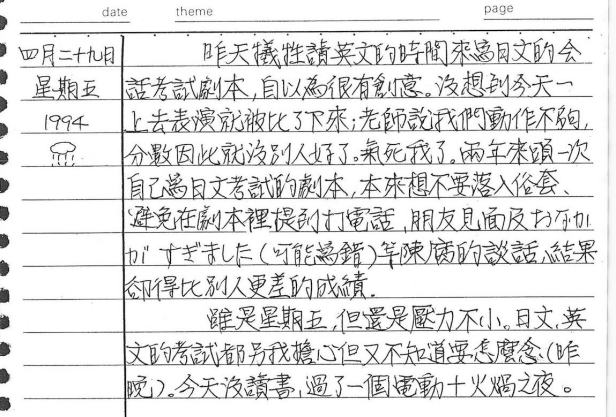 date theme page
四月二十九日
星期五
1994
昨天犧牲讀英文的時間來寫日文的会
話考試劇本,自以為很有創意。沒想到今天一
上去表演就被比了下來;老師說我們動作不夠,
分數因此就沒別人好了。氣死我了。兩年來頭一次
自己寫日文考試的劇本,本來想不要落入俗套、
避免在劇本裡提到打電話,朋友見面及おなか
がすぎました(可能寫錯)等陳腐的談話、結果
卻得比別人更差的成績.
雖是星期五,但還是壓力不小。日文,英
文的考試都另我擔心但又不知道要怎麼念(昨
晚)。今天沒讀書,過了一個電動十火鍋之夜。